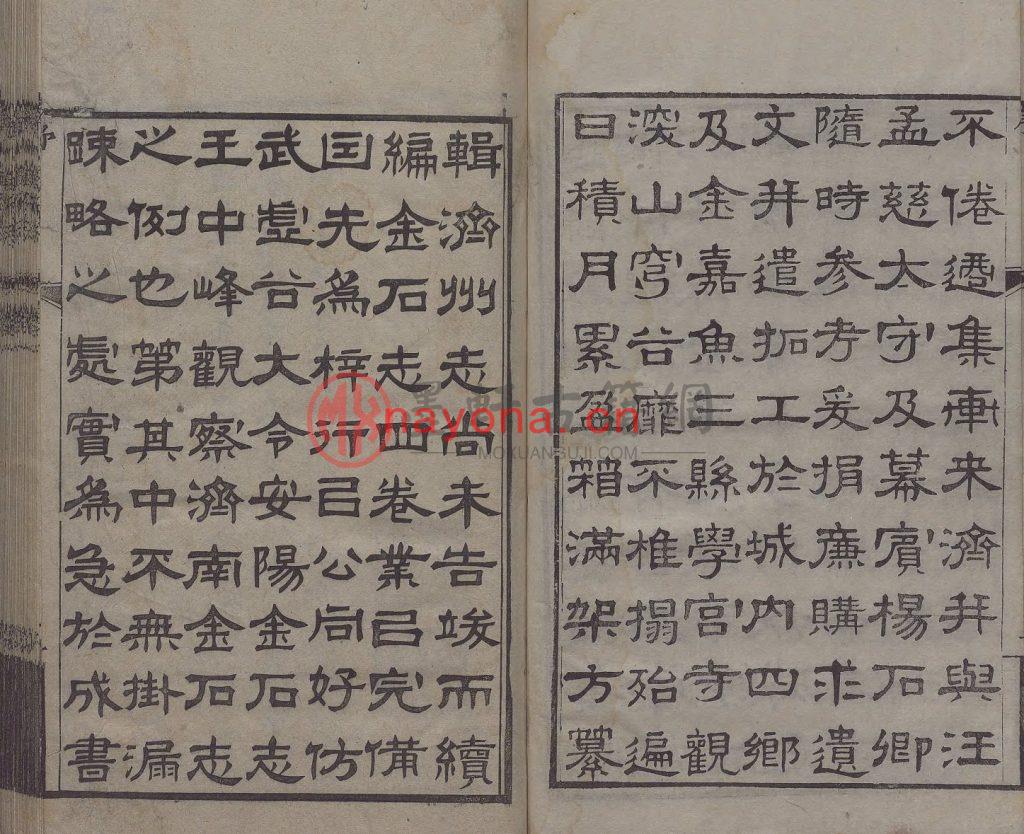 不倦適集車来濟并與汪
孟慈太守及幕賓楊石卿
隨時參考爰捐廉購求遺
文并遣拓工於城內四鄉
及金嘉魚三縣學宮寺觀
深山穹谷靡不椎搨殆遍
日積月累盈箱滿架方纂
輯濟州志尚未告竣而續
編金石志四卷業已完備
因先為梓行已公同好仿
武虛谷大令安陽金石志
王中峰觀察濟南金石志
之例也第其中不無掛漏
踈略之處實為急於成書
nayona.cn
MOXUANGUJI.COM